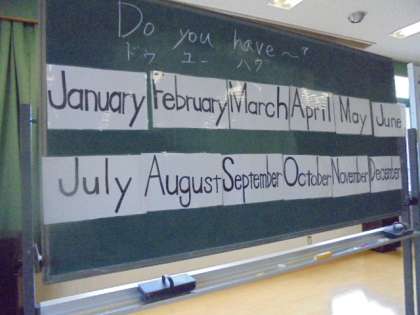 Do you have ~?
ドゥ ユー ハヴ
January February March April May June
July August September October November December